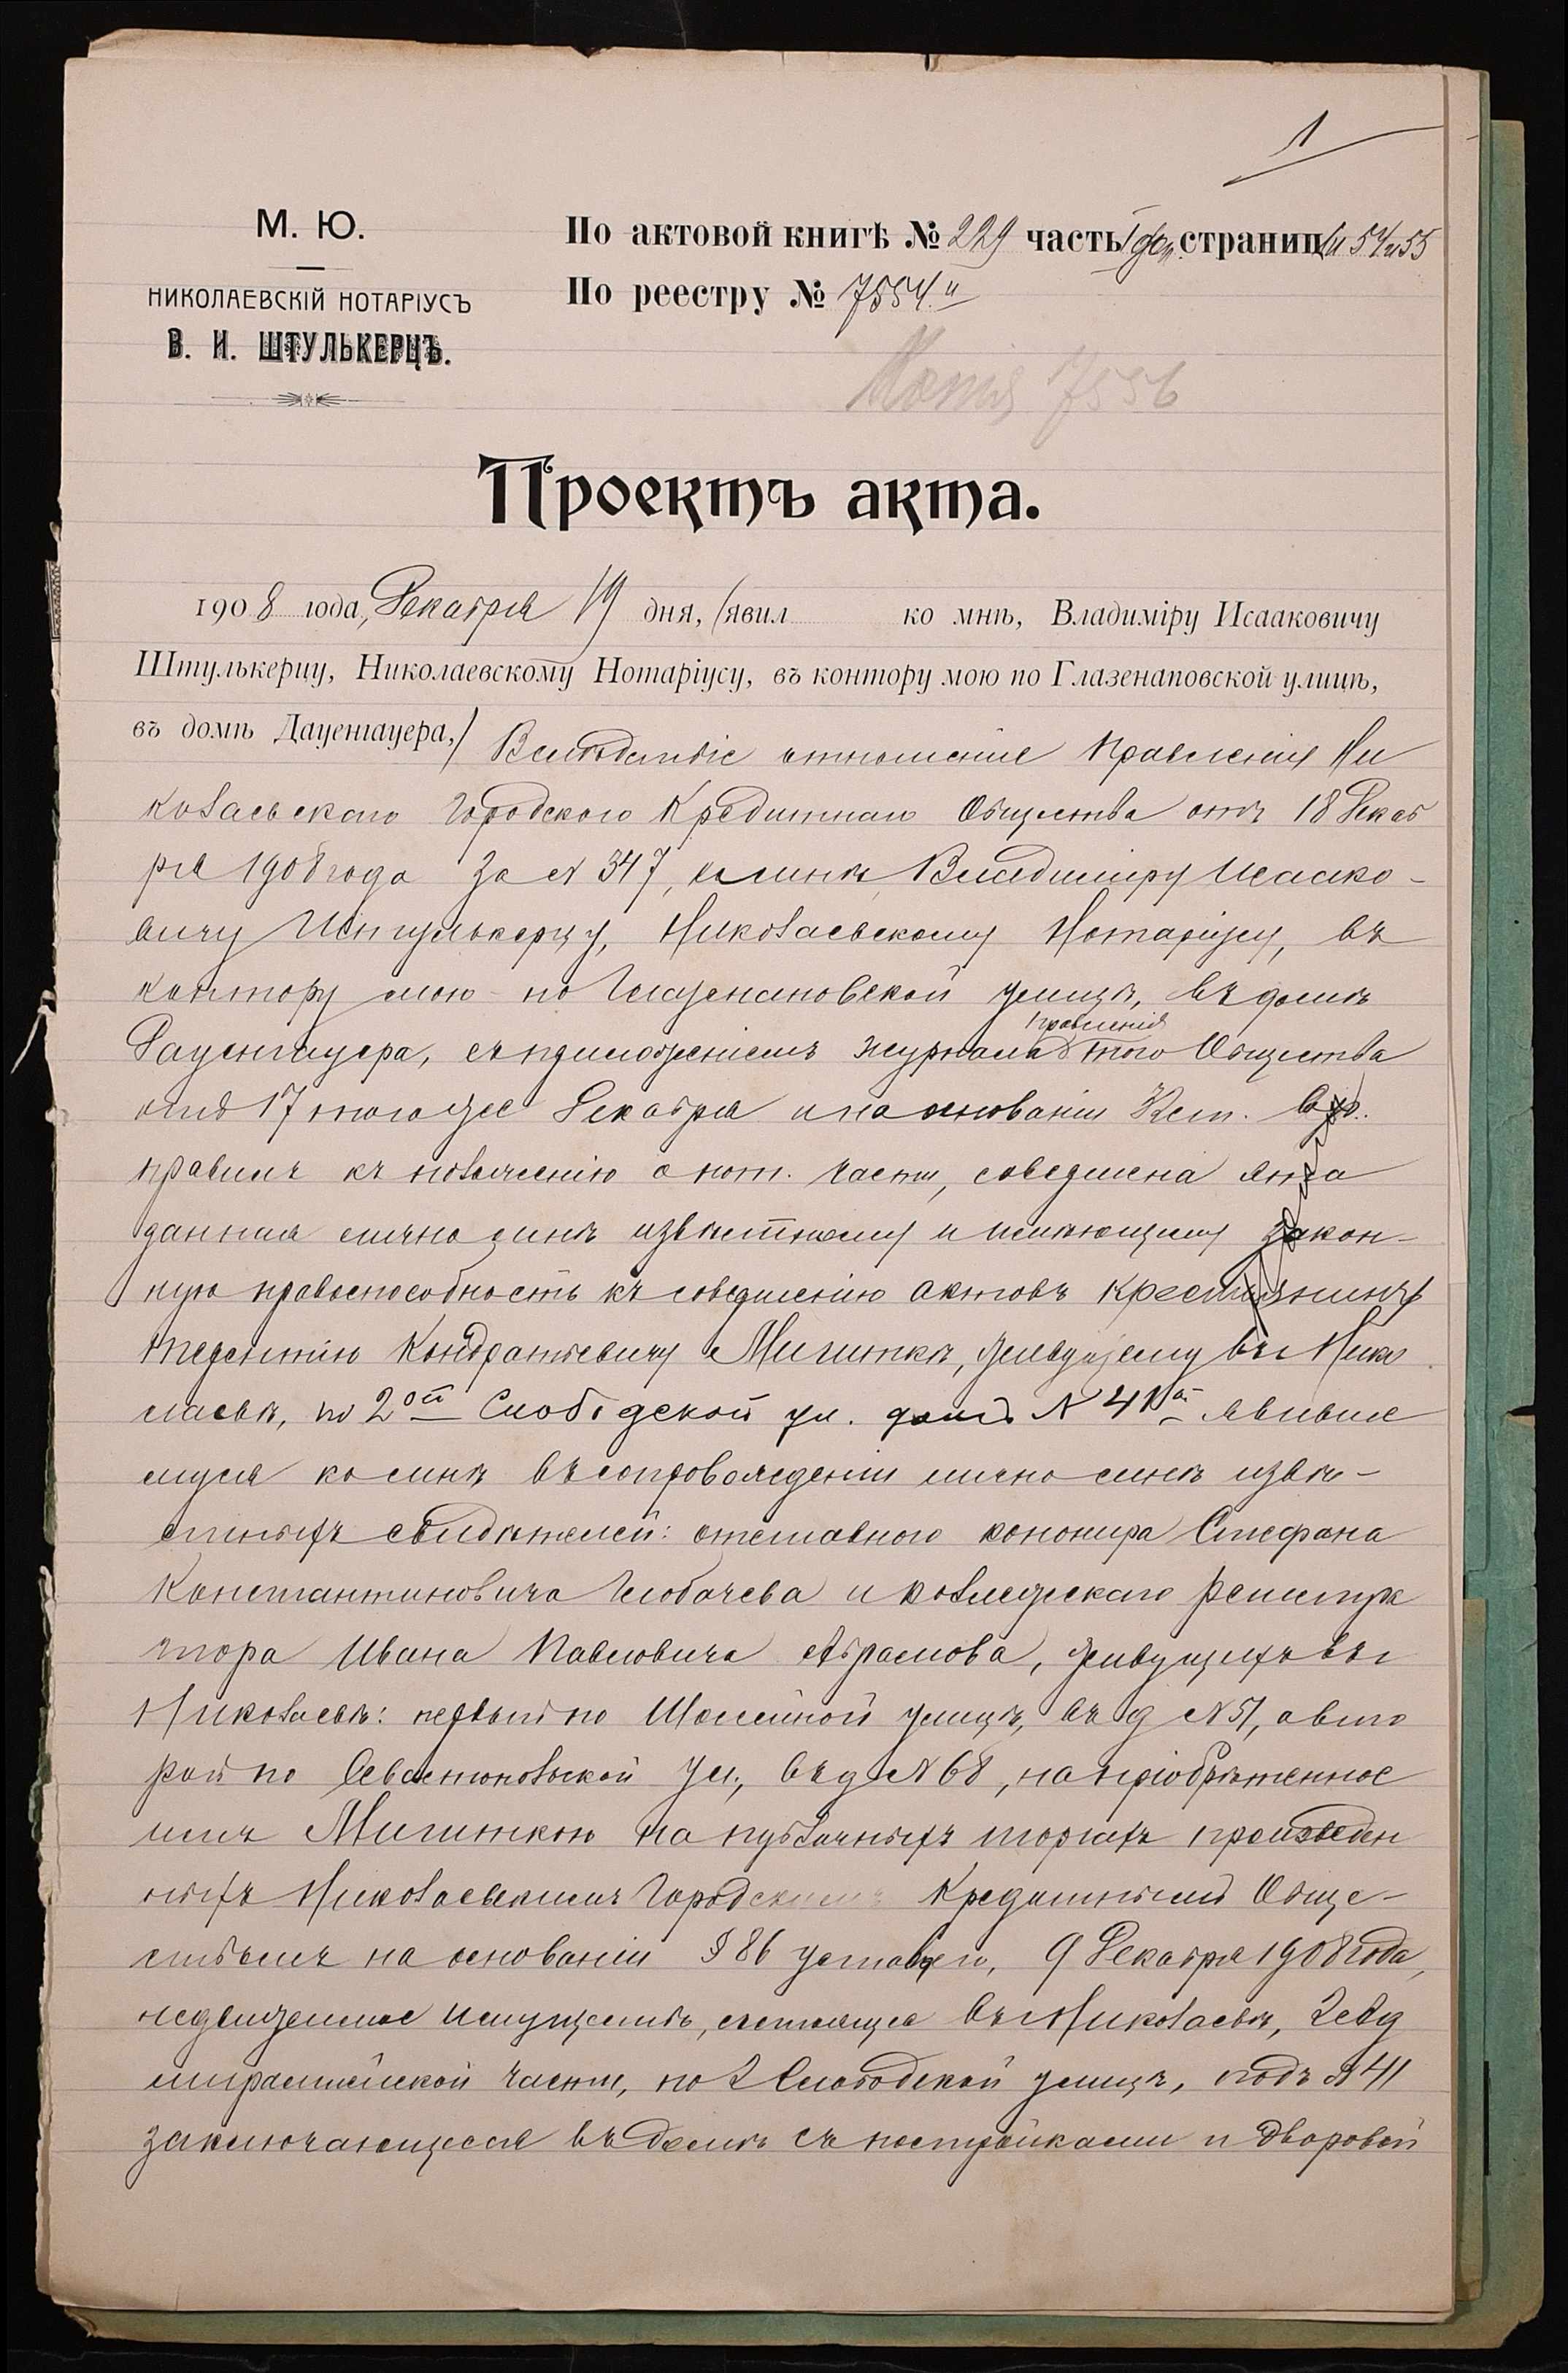 1
М. Ю.
НИКОЛАЕВСКІЙ НОТАРІУСЪ
В. И. ШТУЛЬКЕРЦЪ.
По актовой книгѣ № 229 часть I страниц 54 и 55
По реестру № 7554
Копія 7556
Проектъ акта.
1908 года, Декабря 19 дня, (явил ко мнѣ, Владиміру Исааковичу
Штулькерцу, Николаевскому Нотаріусу, въ контору мою по Глазенаповской улицѣ,
въ домѣ Дауенгауера,) Вслѣдствіе отношенія Правленія Ни
колаевскаго Городского Кредитнаго Общества отъ 18 Декаб
ря 1908 года за № 347, ко мнѣ, Владиміру Исаако-
вичу Штулькерцу, Николаевскому Нотаріусу, въ
контору мою по Глазенаповской улицѣ, въ домѣ
Правленія
Дауенгауера, съ приложеніемъ журнала того Общества
отъ 17 того же Декабря и на основаніи
правилъ къ положенію о нот. части, совершена
данная лично мнѣ извѣстному и имѣющему закон-
ную правоспособность къ совершенію актовъ крестьянину
Терентію Кондратьевичу Мигиткѣ, живущему въ г. Нико
лаевѣ, по 2ой Слободской ул. домъ № 41й явивше
муся ко мнѣ въ сопровожденіи лично мнѣ извѣ-
стныхъ свидѣтелей: отставного канонира Стефана
Константиновича Глобачева и коллежскаго регистра
тора Ивана Павловича Абрамова, живущихъ въ г
Николаевѣ: первый по Шоссейной улицѣ, въ д № 51, а вто
рой по Севастопольской ул., въ д № 68, на пріобрѣтенное
имъ Мигиткою на публичныхъ торгахъ произведен
ныхъ Николаевскимъ Городскимъ Кредитнымъ Обще-
ствомъ на основаніи § 86 устава его, 9 Декабря 1908 года,
недвижимое имущество, состоящее въ г Николаевѣ, 2й Ад
миралтейской части, по 2 Слободской улицѣ, подъ № 41
заключающееся въ домѣ съ постройками и дворовой